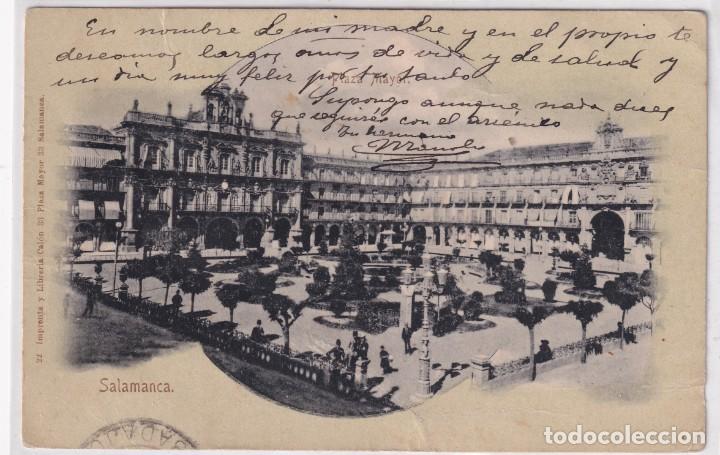 En nombre de mi madre y en el propio te
deseamos largos años de vida y de salud y
un dia muy feliz por tu santo
Plaza Mayor.
Supongo aunque nada dices
que seguirás con el arsénico
Tu hermano
Manolo
22 Imprenta y Librería Calón 33 Plaza Mayor 33 Salamanca.
Salamanca.
todocoleccion.net